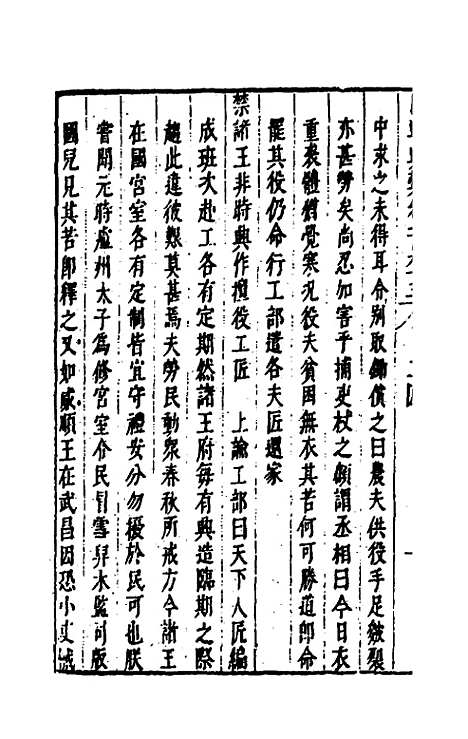 中求之未得耳令別取鋤償之曰農夫供役手足皴裂
亦甚勞矣尚忍加害乎捕吏杖之顧謂丞相曰今日衣
重裘體猶覺寒况役夫貧困無衣其苦何可勝道即命
罷其役仍命行工部遣各夫匠還家
禁諸王非時興作擅役工匠　上諭工部曰天下人匠編
成班次赴工各有定期然諸王府每有興造臨期之際
趨此違彼艱莫甚焉夫勞民動衆春秋所戒方今諸王
在國宮室各有定制皆宜守禮安分勿擾於民可也朕
嘗聞元時廬州太子為修宮室令民冒雪舁木監司版
國兒見其苦即釋之又如威順王在武昌因恐小吏